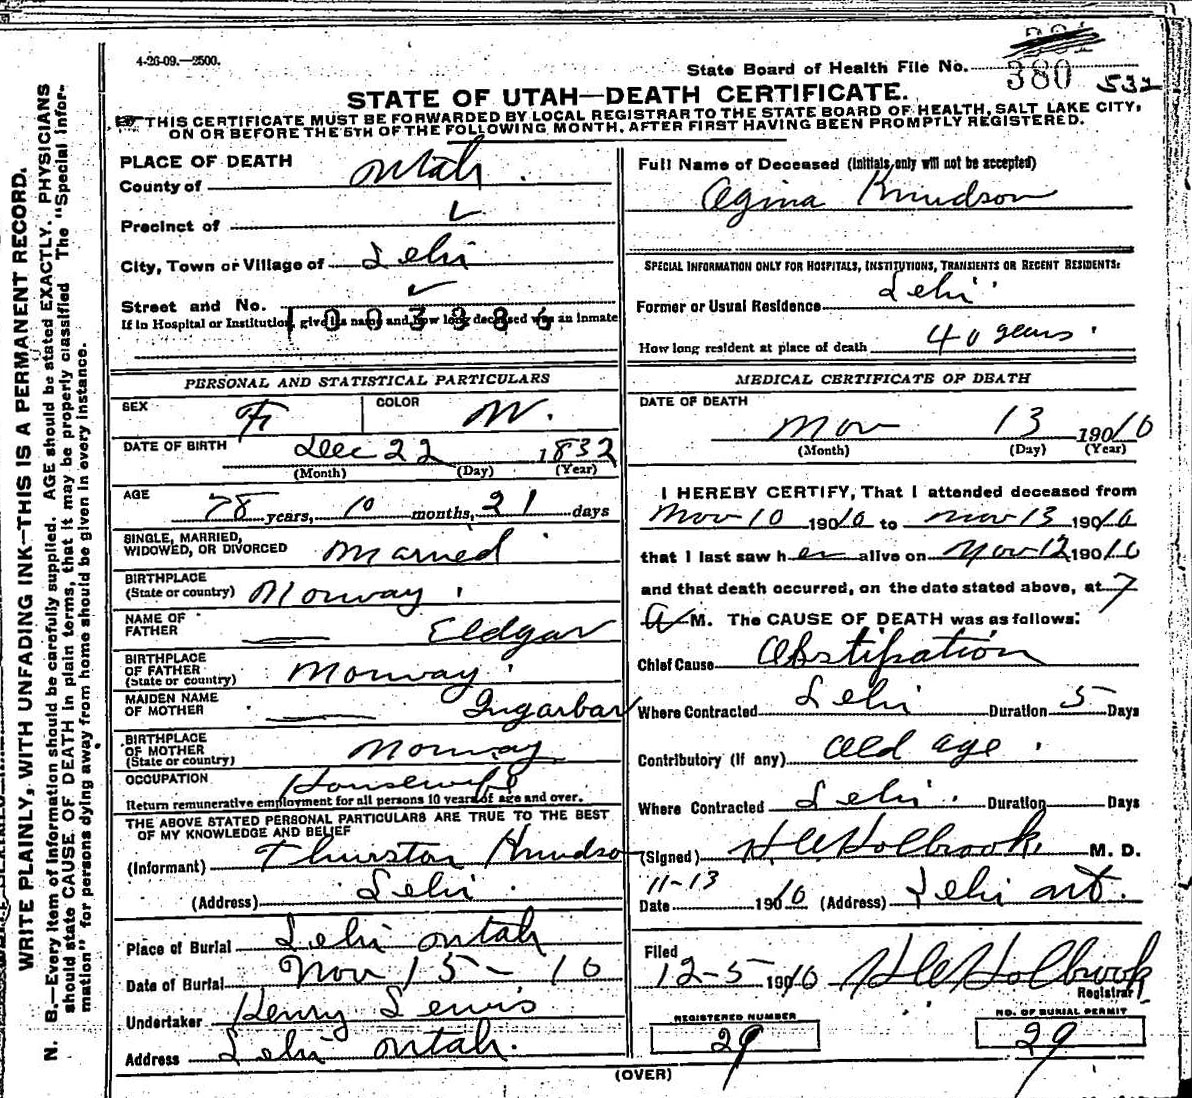 4-26-09.—2500.
State Board of Health File No. 380 532
STATE OF UTAH—DEATH CERTIFICATE.
THIS CERTIFICATE MUST BE FORWARDED BY LOCAL REGISTRAR TO THE STATE BOARD OF HEALTH, SALT LAKE CITY,
ON OR BEFORE THE 5TH OF THE FOLLOWING MONTH, AFTER FIRST HAVING BEEN PROMPTLY REGISTERED.
WRITE PLAINLY, WITH UNFADING INK—THIS IS A PERMANENT RECORD.
N. B.—Every item of information should be carefully supplied. AGE should be stated EXACTLY. PHYSICIANS
should state CAUSE OF DEATH in plain terms, that it may be properly classified. The "Special Infor-
mation" for persons dying away from home should be given in every instance.
PLACE OF DEATH
County of Utah
Precinct of ✓
City, Town or Village of Lehi
Street and No. ✓
If in Hospital or Institution, give its name and how long deceased was an inmate
1003386
PERSONAL AND STATISTICAL PARTICULARS
SEX F. COLOR W.
DATE OF BIRTH Dec 22 1832
(Month) (Day) (Year)
AGE 78 years, 10 months, 21 days
SINGLE, MARRIED,
WIDOWED, OR DIVORCED Married
BIRTHPLACE
(State or country) Norway
NAME OF
FATHER — Eldgar
BIRTHPLACE
OF FATHER
(State or country) Norway
MAIDEN NAME
OF MOTHER — Ingarbar
BIRTHPLACE
OF MOTHER
(State or country) Norway
OCCUPATION Housewife
Return remunerative employment for all persons 10 years of age and over.
THE ABOVE STATED PERSONAL PARTICULARS ARE TRUE TO THE BEST
OF MY KNOWLEDGE AND BELIEF
(Informant) Thurston Knudson
(Address) Lehi
Place of Burial Lehi Utah
Date of Burial Nov 15 - 10
Undertaker Henry Lewis
Address Lehi Utah.
Full Name of Deceased (Initials only will not be accepted)
Agina Knudson
SPECIAL INFORMATION ONLY FOR HOSPITALS, INSTITUTIONS, TRANSIENTS OR RECENT RESIDENTS:
Former or Usual Residence Lehi
How long resident at place of death 40 years
MEDICAL CERTIFICATE OF DEATH
DATE OF DEATH
Nov 13 1910
(Month) (Day) (Year)
I HEREBY CERTIFY, That I attended deceased from
Nov 10 1910 to Nov 13 1910
that I last saw her alive on Nov 12 1910
and that death occurred, on the date stated above, at 7
A M. The CAUSE OF DEATH was as follows:
Chief Cause Obstipation
Where Contracted Lehi Duration 5 Days
Contributory (If any) Old age
Where Contracted Lehi. Duration Days
(Signed) H C Holbrook M. D.
11-13
Date 1910 (Address) Lehi Ut.
Filed
12-5 1910 H C Holbrook
Registrar
REGISTERED NUMBER
29
NO. OF BURIAL PERMIT
29
(OVER)